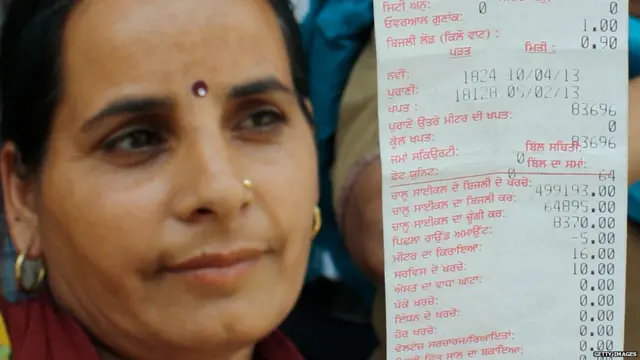 ਸਿਟੀ ਅਨੁ: 0 0
ਓਵਰਆਲ ਗੁਣਾਂਕ: 1.00
ਬਿਜਲੀ ਲੋਡ (ਕਿਲੋ ਵਾਟ) : 0.90
ਪੜਤ ਮਿਤੀ :
ਨਵੀਂ: 1824 10/04/13
ਪੁਰਾਣੀ: 18128 05/02/13
ਖਪਤ : 83696
ਪੁਰਾਣੇ ਉਤਰੇ ਮੀਟਰ ਦੀ ਖਪਤ: 0
ਕੁੱਲ ਖਪਤ: 83696
ਜਮਾਂ ਸਕਿਉਰਟੀ: 0 ਬਿੱਲ ਸਥਿਤੀ:
ਛੋਟ ਯੂਨਿਟ: 0 ਬਿੱਲ ਦਾ ਸਮਾਂ: 64
ਚਾਲੂ ਸਾਈਕਲ ਦੇ ਬਿਜਲੀ ਦੇ ਖਰਚੇ: 499193.00
ਚਾਲੂ ਸਾਈਕਲ ਦਾ ਬਿਜਲੀ ਕਰ: 64895.00
ਚਾਲੂ ਸਾਈਕਲ ਦਾ ਚੁੰਗੀ ਕਰ: 8370.00
ਪਿਛਲਾ ਰਾਊਂਡ ਅਮਾਊਂਟ: -5.00
ਮੀਟਰ ਦਾ ਕਿਰਾਇਆ: 16.00
ਸਰਵਿਸ ਦੇ ਖਰਚੇ: 10.00
ਔਸਤ ਦਾ ਵਾਧਾ ਘਾਟਾ: 0.00
ਪੱਕੇ ਖਰਚੇ: 0.00
ਇੰਧਨ ਦੇ ਖਰਚੇ: 0.00
ਹੋਰ ਖਰਚੇ: 0.00
ਵੋਲਟੇਜ ਸਰਚਾਰਜ/ਰਿਆਇਤਾਂ: 0.00
ਸਾਲ ਦਾ ਬਕਾਇਆ: 0.00
GETTY IMAGES